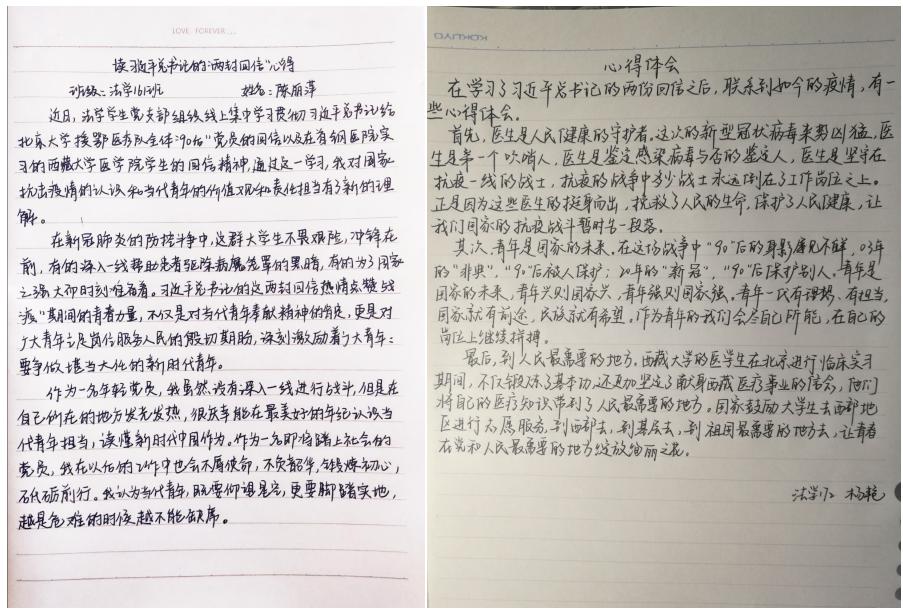 LOVE FOREVER...
读习近平总书记的"两封回信"心得
班级：法学161班 姓名：陈丽萍
近日，法学学生党支部组织线上集中学习贯彻习近平总书记给
北京大学援鄂医疗队全体"90后"党员的回信以及在首钢医院实
习的西藏大学医学院学生的回信精神，通过这一学习，我对国家
抗击疫情的认识和当代青年的价值观和责任担当有了新的理
解。
在新冠肺炎的防控斗争中，这群大学生不畏艰险，冲锋在
前，有的深入一线帮助患者驱除病魔笼罩的黑暗，有的为了国家
之强大而时刻准备着。习近平总书记的这两封回信热情点赞"战
疫"期间的青春力量，不仅是对当代青年奉献精神的肯定，更是对
广大青年立足岗位服务人民的殷切期盼，深刻激励着广大青年：
要争做堪当大任的新时代青年。
作为一名年轻党员，我虽然没有深入一线进行战斗，但是在
自己所在的地方发光发热，很庆幸能在最美好的年纪认识当
代青年担当，读懂新时代中国作为。作为一名即将踏上社会的
党员，我在以后的工作中也会不辱使命，不负韶华，锤炼初心，
砥砺前行。我认为当代青年，既要仰望星空，更要脚踏实地，
越是危难的时候越不能缺席。
KOKUYO
心得体会
在学习了习近平总书记的两份回信之后，联系到如今的疫情，有一
些心得体会。
首先，医生是人民健康的守护者。这次的新型冠状病毒来势凶猛，医
生是第一个吹哨人，医生是鉴定感染病毒与否的鉴定人，医生是坚守在
抗疫一线的战士，抗疫的战争中多少战士永远倒在了工作岗位之上。
正是因为这些医生的挺身而出，挽救了人民的生命，保护了人民健康，让
我们国家的抗疫战斗暂时告一段落。
其次，青年是国家的未来。在这场战争中"90"后的身影屡见不鲜，03年
的"非典"，"90"后被人保护；20年的"新冠"，"90"后保护别人。青年是
国家的未来，青年兴则国家兴，青年强则国家强。青年一代有理想、有担当，
国家就有前途，民族就有希望。作为青年的我们会尽自己所能，在自己的
岗位上继续拼搏。
最后，到人民最需要的地方。西藏大学的医学生在北京进行临床实习
期间，不仅锻炼了基本功，还更加坚定了献身西藏医疗事业的信念，他们
将自己的医疗知识带到了人民最需要的地方。国家鼓励大学生去西部地
区进行志愿服务，到西部去，到基层去，到祖国最需要的地方去，让青春
在党和人民最需要的地方绽放绚丽之花。
法学172 杨艳